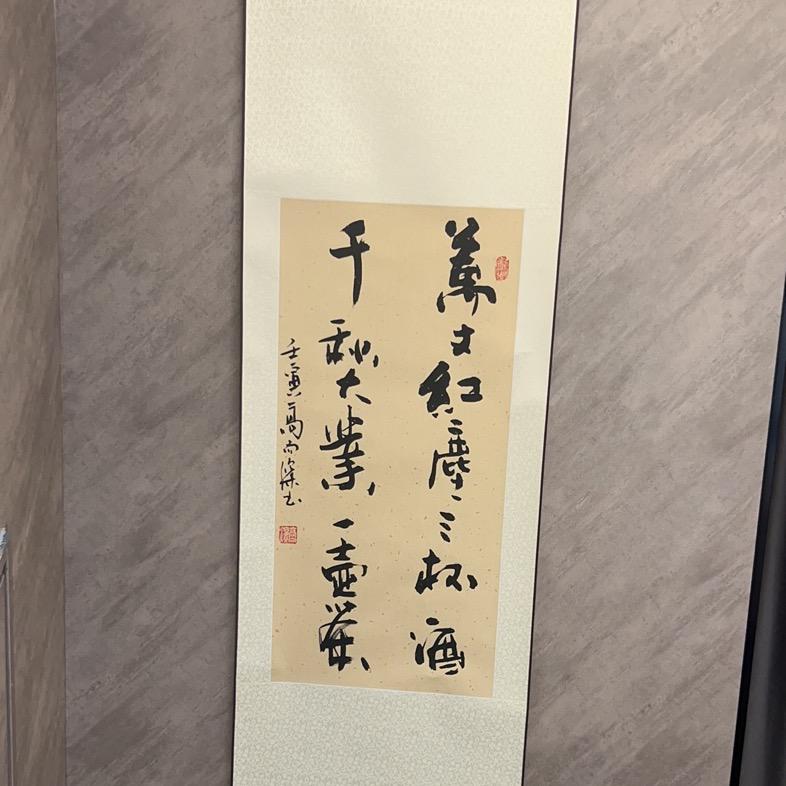 萬丈紅塵三杯酒
千秋大業一壺茶
壬寅高向深书